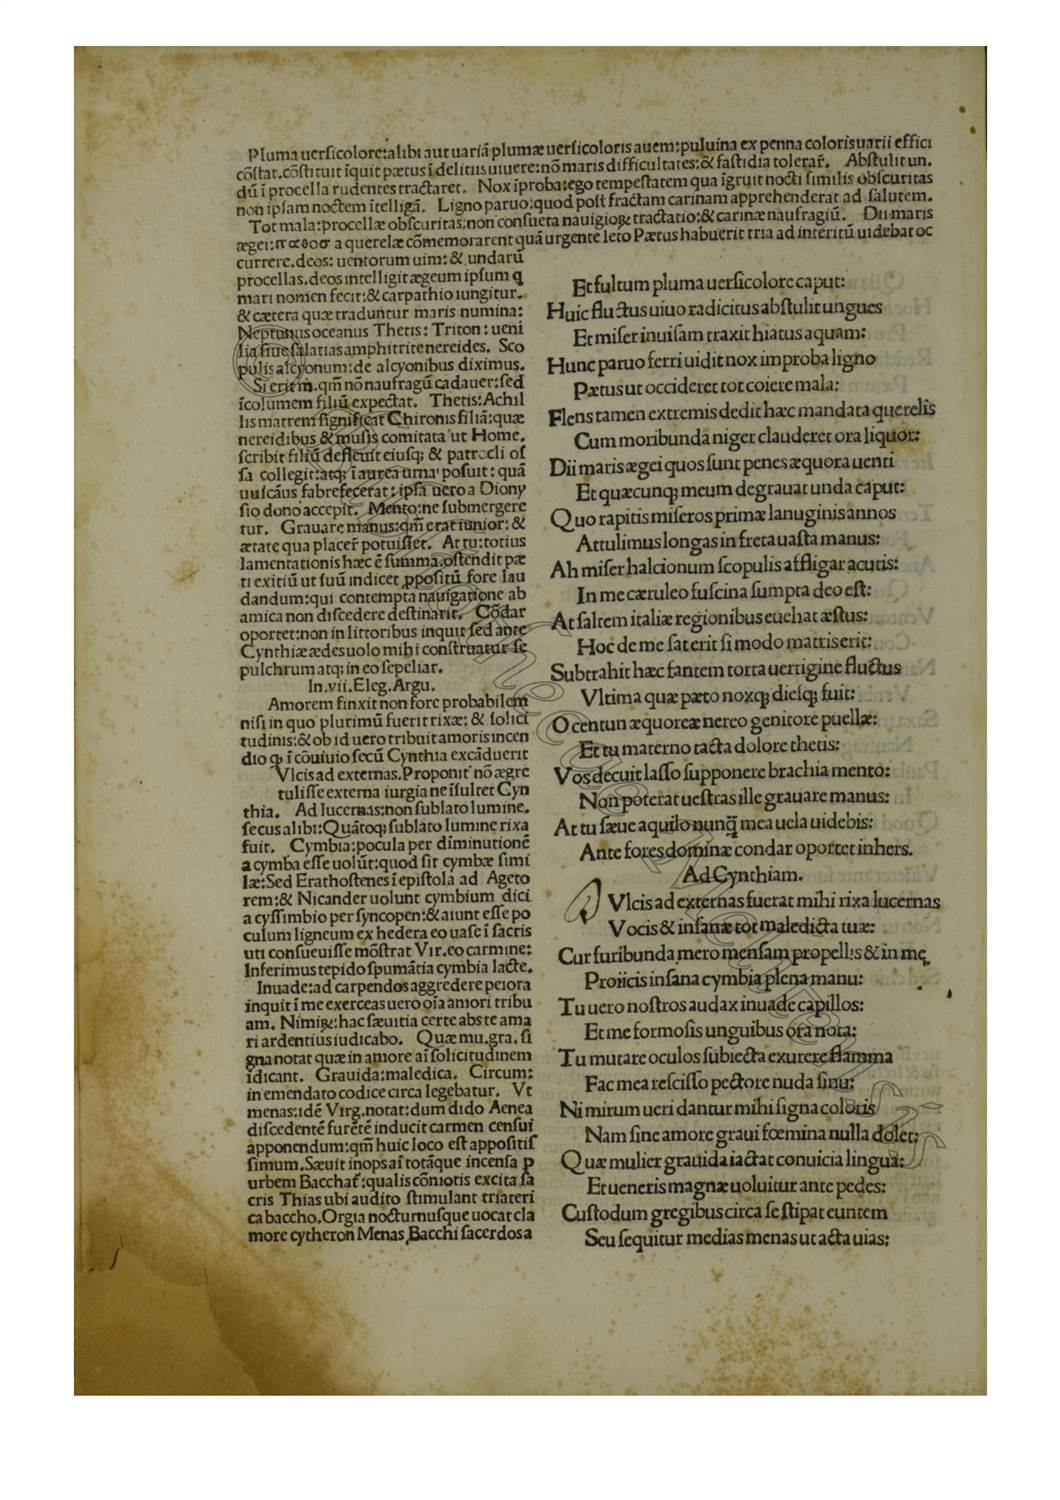 Pluma uersicolore:alibi aut uariā plumæ uersicoloris auem:puluina ex penna coloris uarii effici
cōstat.cōstituit īquit pætus ī delitiis uiuere:nō maris difficultates:& fastidia tolerar̄. Abstulit un.
dū ī procella rudentes tractaret. Nox īproba:ego tempestatem qua īgruit nocti similis obscuritas
non ipsam noctem ītelligā. Ligno paruo:quod post fractam carinam apprehenderat ad salutem.
Tot mala:procellæ obscuritas:non consueta nauigioꝝ tractatio:& carinæ naufragiū. Dii maris
ægei: a querelæ cōmemorarent quā urgente leto Pætus habuerit tria ad interitū uidebat oc
currere.deos: uentorum uim: & undarū
procellas.deos intelligit ægeum ipsum q
mari nomen fecit:& carpathio iungitur.
& cætera quæ traduntur maris numina:
Neptunus oceanus Thetis: Triton: ueni
lia siue salatias amphitrite nereides. Sco
pulis alcyonum:de alcyonibus diximus.
Si erit m.qm̄ nō naufragū cadauer:sed
īcolumem filiū expectat. Thetis:Achil
lis matrem significat Chironis filiā:quæ
nereidibus & musis comitata ut Home.
scribit filiū defleuit eiusq; & patrocli os
sa collegit:atq; ī aurea urna posuit: quā
uulcāus fabrefecerat: ipsa uero a Diony
sio dono accepit. Mento:ne submergere
tur. Grauare manus:qm̄ erat iunior: &
ætate qua placer̄ potuisset. At tu:totius
lamentationis hæc ē summa.ostendit pæ
ti exitiū ut suū indicet ꝓpositū fore lau
dandum:qui contempta nauigatione ab
amica non discedere destinarit. Cōdar
oportet:non in littoribus inquit sed ante
Cynthiæ ædes uolo mihi construatur se
pulchrum atq; in eo sepeliar.
In.vii.Eleg.Argu.
Amorem finxit non fore probabilem
nisi in quo plurimū fuerit rixæ: & solici
tudinis:& ob id uero tribuit amoris incen
dio ꝙ ī cōuiuio secū Cynthia excāduerit
Vlcis ad externas.Proponit nō ægre
tulisse externa iurgia ne īsultet Cyn
thia. Ad lucernas:non sublato lumine.
secus alibi:Quātoq; sublato lumine rixa
fuit. Cymbia:pocula per diminutionē
a cymba esse uolūt:quod sit cymbæ simi
læ:Sed Erathostenes ī epistola ad Ageto
rem:& Nicander uolunt cymbium dici
a cyssimbio per syncopen:& aiunt esse po
culum ligneum ex hedera eo uase ī sacris
uti consueuisse mōstrat Vir.eo carmine:
Inferimus tepido spumātia cymbia lacte.
Inuade:ad carpendos aggredere peiora
inquit ī me exerceas uero oīa amori tribu
am. Nimiꝝ:hac sæuitia certe abs te ama
ri ardentius iudicabo. Quæ mu.gra.si
gna notat quæ in amore aī solicitudinem
īdicant. Grauida:maledica. Circum:
in emendato codice circa legebatur. Vt
menas:idē Virg.notat:dum dido Aenea
discedentē furētē inducit carmen censui
apponendum:qm̄ huic loco est appositis
simum.Sæuit inops aī totāque incensa ꝑ
urbem Bacchaf:qualis cōmotis excita sa
cris Thias ubi audito stimulant triateri
ca baccho.Orgia nocturnusque uocat cla
more cytheron Menas Bacchi sacerdos a
Et fultum pluma uersicolore caput:
Huic fluctus uiuo radicitus abstulit ungues
Et miser inuisam traxit hiatus aquam:
Hunc paruo ferri uidit nox improba ligno
Pætus ut occideret tot coiere mala:
Flens tamen extremis dedit hæc mandata querelis
Cum moribunda niger clauderet ora liquor:
Dii maris ægei quos sunt penes æquora uenti
Et quæcunq; meum degrauat unda caput:
Quo rapitis miseros primæ lanuginis annos
Attulimus longas in freta uasta manus:
Ah miser halcionum scopulis affligar acutis:
In me cæruleo fuscina sumpta deo est:
At saltem italiæ regionibus euehat æstus:
Hoc de me sat erit si modo matris erit:
Subtrahit hæc fantem torta uertigine fluctus
Vltima quæ pæto noxq; diesq; fuit:
O centun æquoreæ nereo genitore puellæ:
Et tu materno tacta dolore thetis:
Vos decuit lasso supponere brachia mento:
Non poterat uestras ille grauare manus:
At tu sæue aquilo nunq̄ mea uela uidebis:
Ante fores dominæ condar oportet inhers.
Ad Cynthiam.
Vlcis ad externas fuerat mihi rixa lucernas
Vocis & insanæ tot maledicta tuæ:
Cur furibunda mero mensam propellis & in me
Proiicis insana cymbia plena manu:
Tu uero nostros audax inuade capillos:
Et me formosis unguibus ora nota:
Tu mutare oculos subiecta exurere flamma
Fac mea rescisso pectore nuda sinu:
Nimirum ueri dantur mihi signa coloris
Nam sine amore graui fœmina nulla dolet:
Quæ mulier grauida iactat conuicia lingua:
Et ueneris magnæ uoluitur ante pedes:
Custodum gregibus circa se stipat euntem
Seu sequitur medias menas ut acta uias: